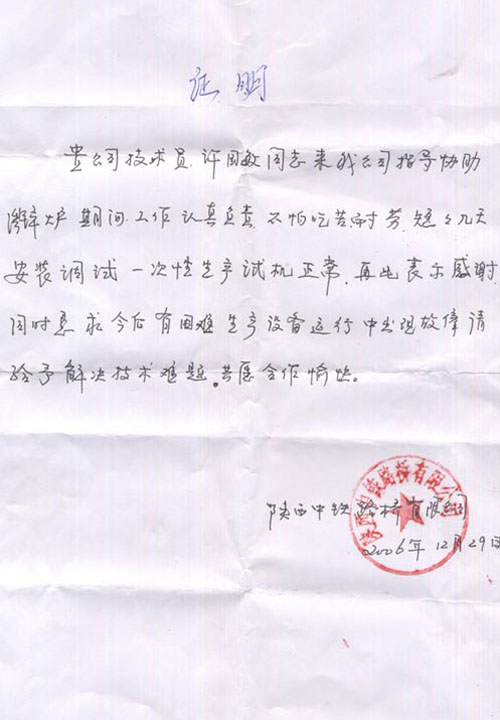 证明
贵公司技术员许国敏同志来我公司指导协助
炉期间工作认真负责.不怕吃苦耐劳.短短几天
安装调试一次性生产试机正常.再此表示感谢.
同时恳求今后有困难生产设备运行中出现故障请
给予解决技术难题。共愿合作愉快。
陕西中铁路桥有限公司
2006年12月29日
陕西中铁路桥有限公司